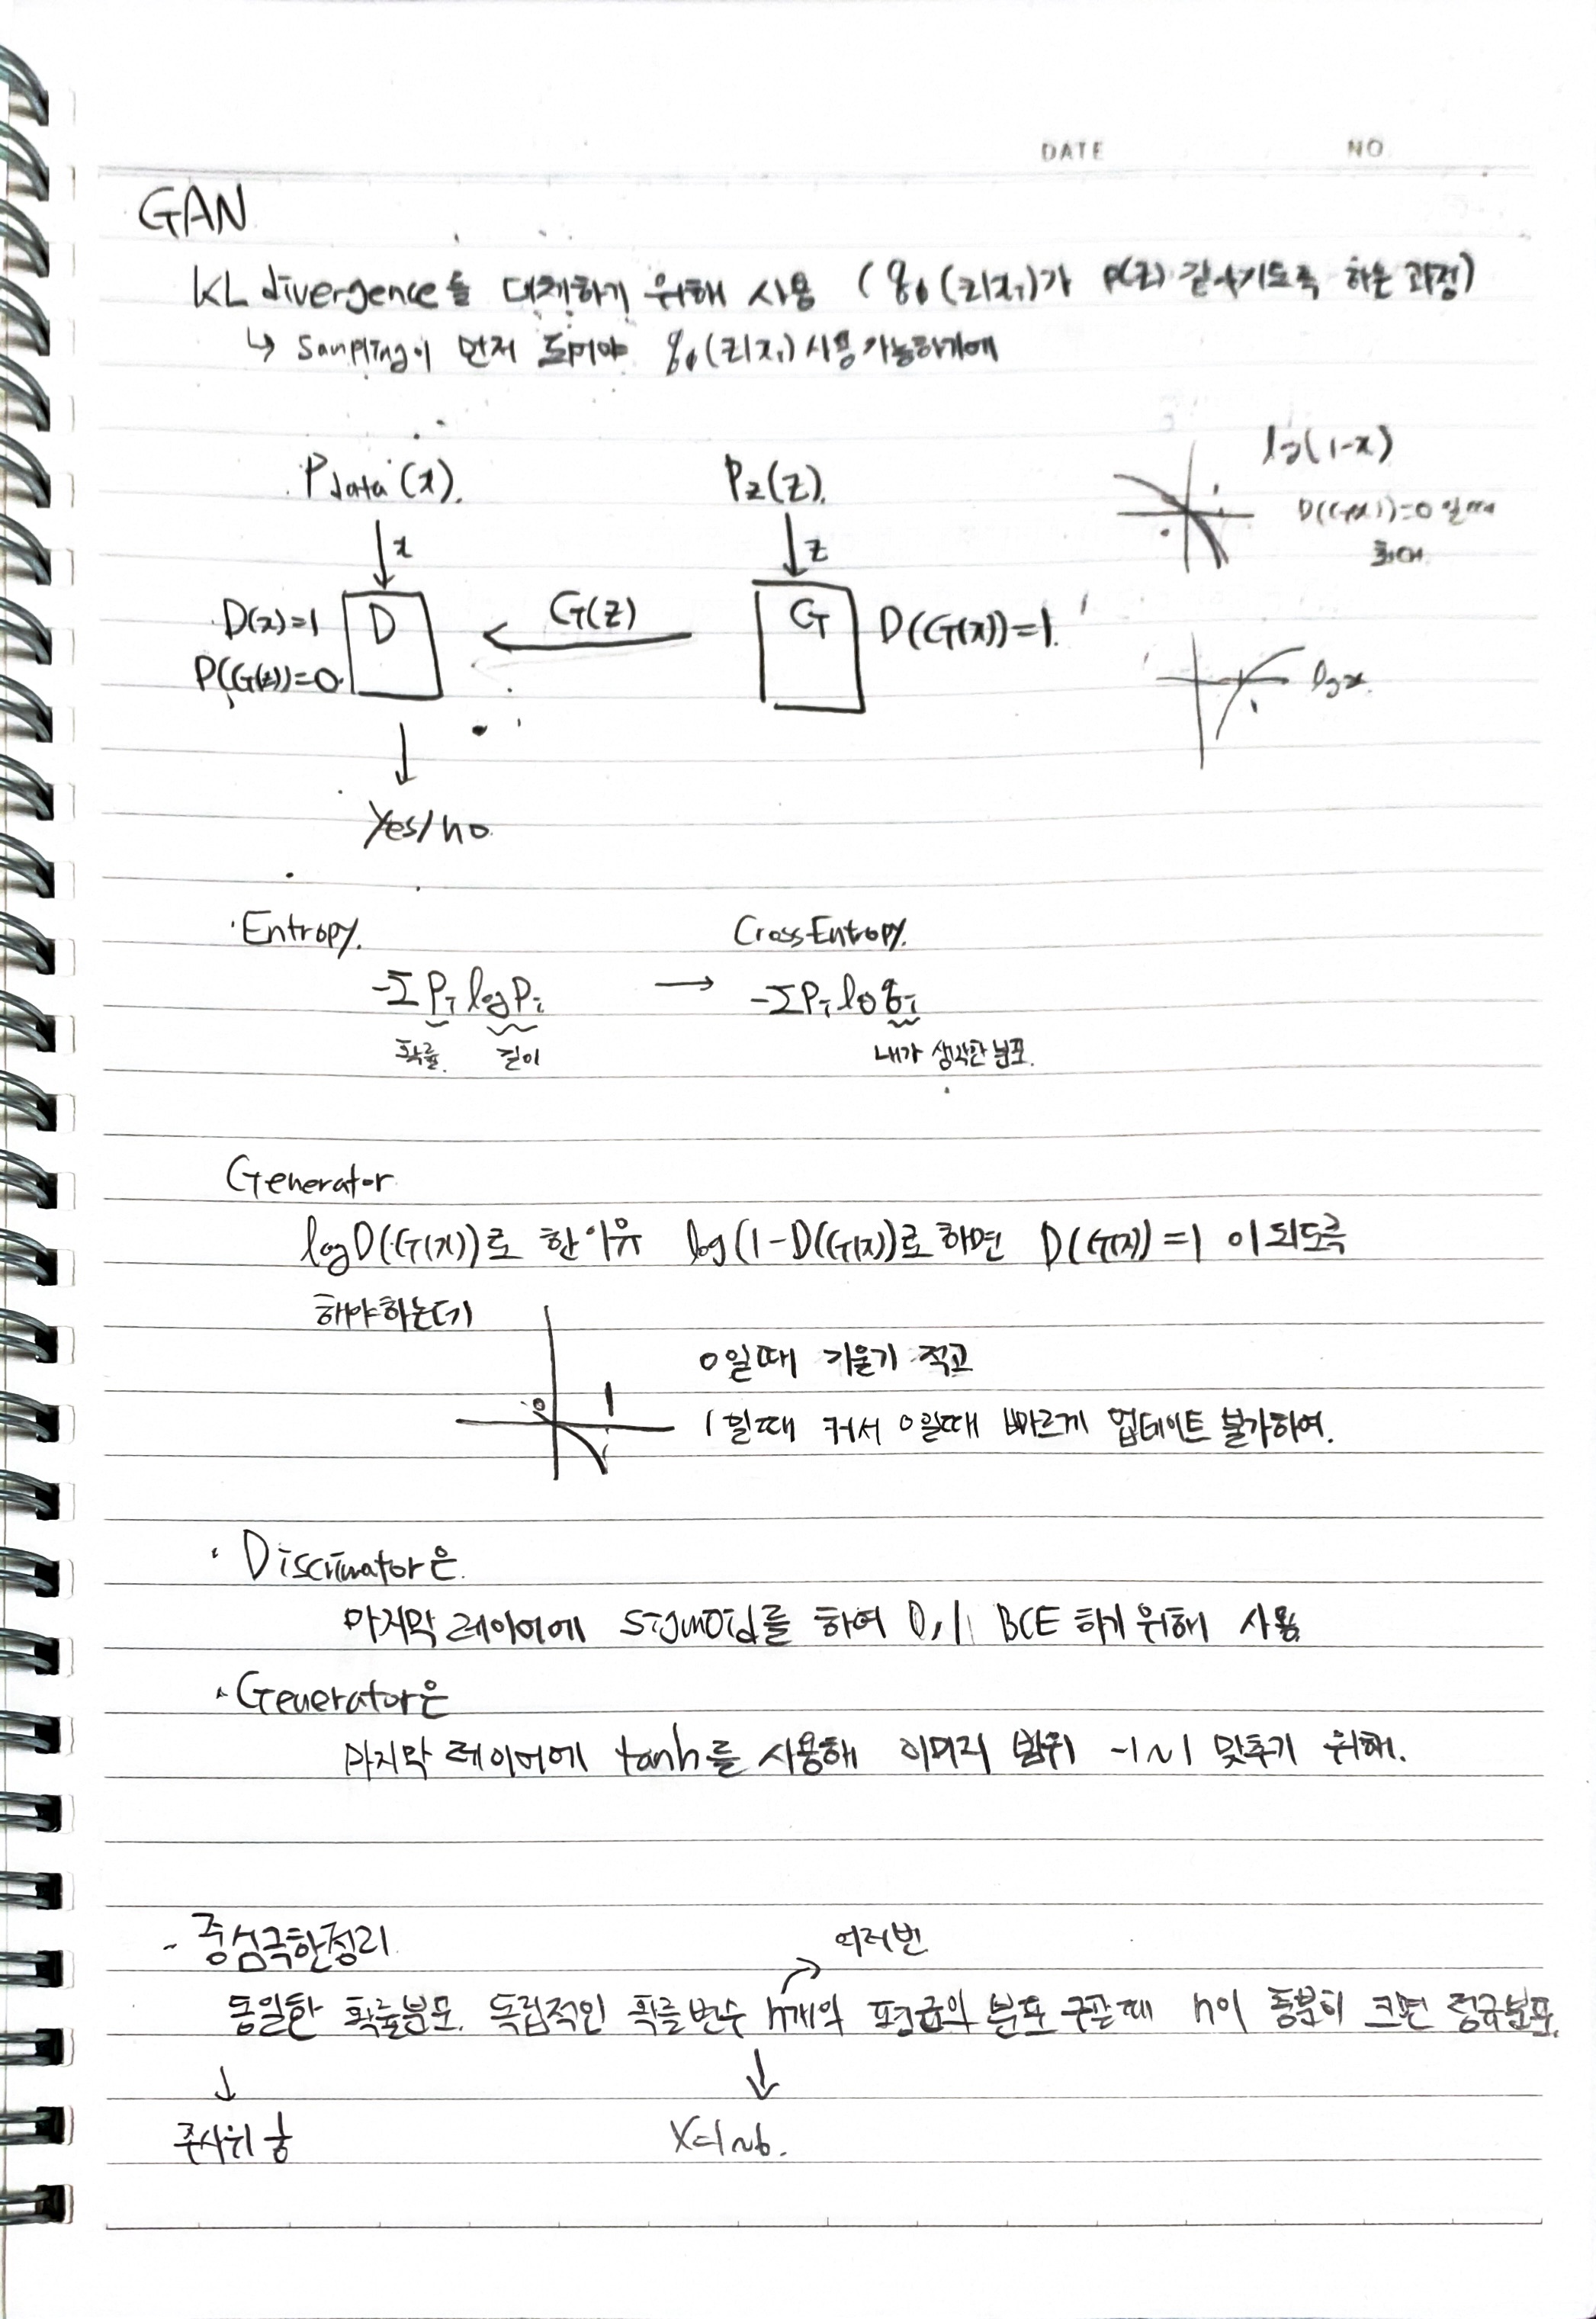 DATE NO.
GAN
KL divergence를 대체하기 위해 사용 ( qφ(z|xi)가 p(z) 같아지도록 하는 과정)
↳ sampling이 먼저 되어야 qφ(z|xi) 사용가능하기에
Pdata(x). Pz(z). log(1-x)
D(G(x))=0 일때
최대
x z
D(x)=1 D G(z) G D(G(x))=1.
P(G(z))=0. logx.
Yes/no.
·Entropy. CrossEntropy.
-Σ Pi log Pi → -ΣPi log qi
확률. 길이 내가 생각한 분포.
Generator
logD(G(x))로 한 이유 log(1-D(G(x))로 하면 D(G(x))=1 이 되도록
해야하는데
0 1
0일때 기울기 적고
1일때 커서 0일때 빠르게 업데이트 불가하여.
· Discrimator은.
마지막 레이어에 sigmoid를 하여 0,1 BCE 하기 위해 사용
· Generator은
마지막 레이어에 tanh를 사용해 이미지 범위 -1~1 맞추기 위해.
- 중심극한정리 여러번
동일한 확률분포. 독립적인 확률 변수 n개의 평균의 분포 구할때 n이 충분히 크면 정규분포.
↓ ↓
주사위 X=1~6.